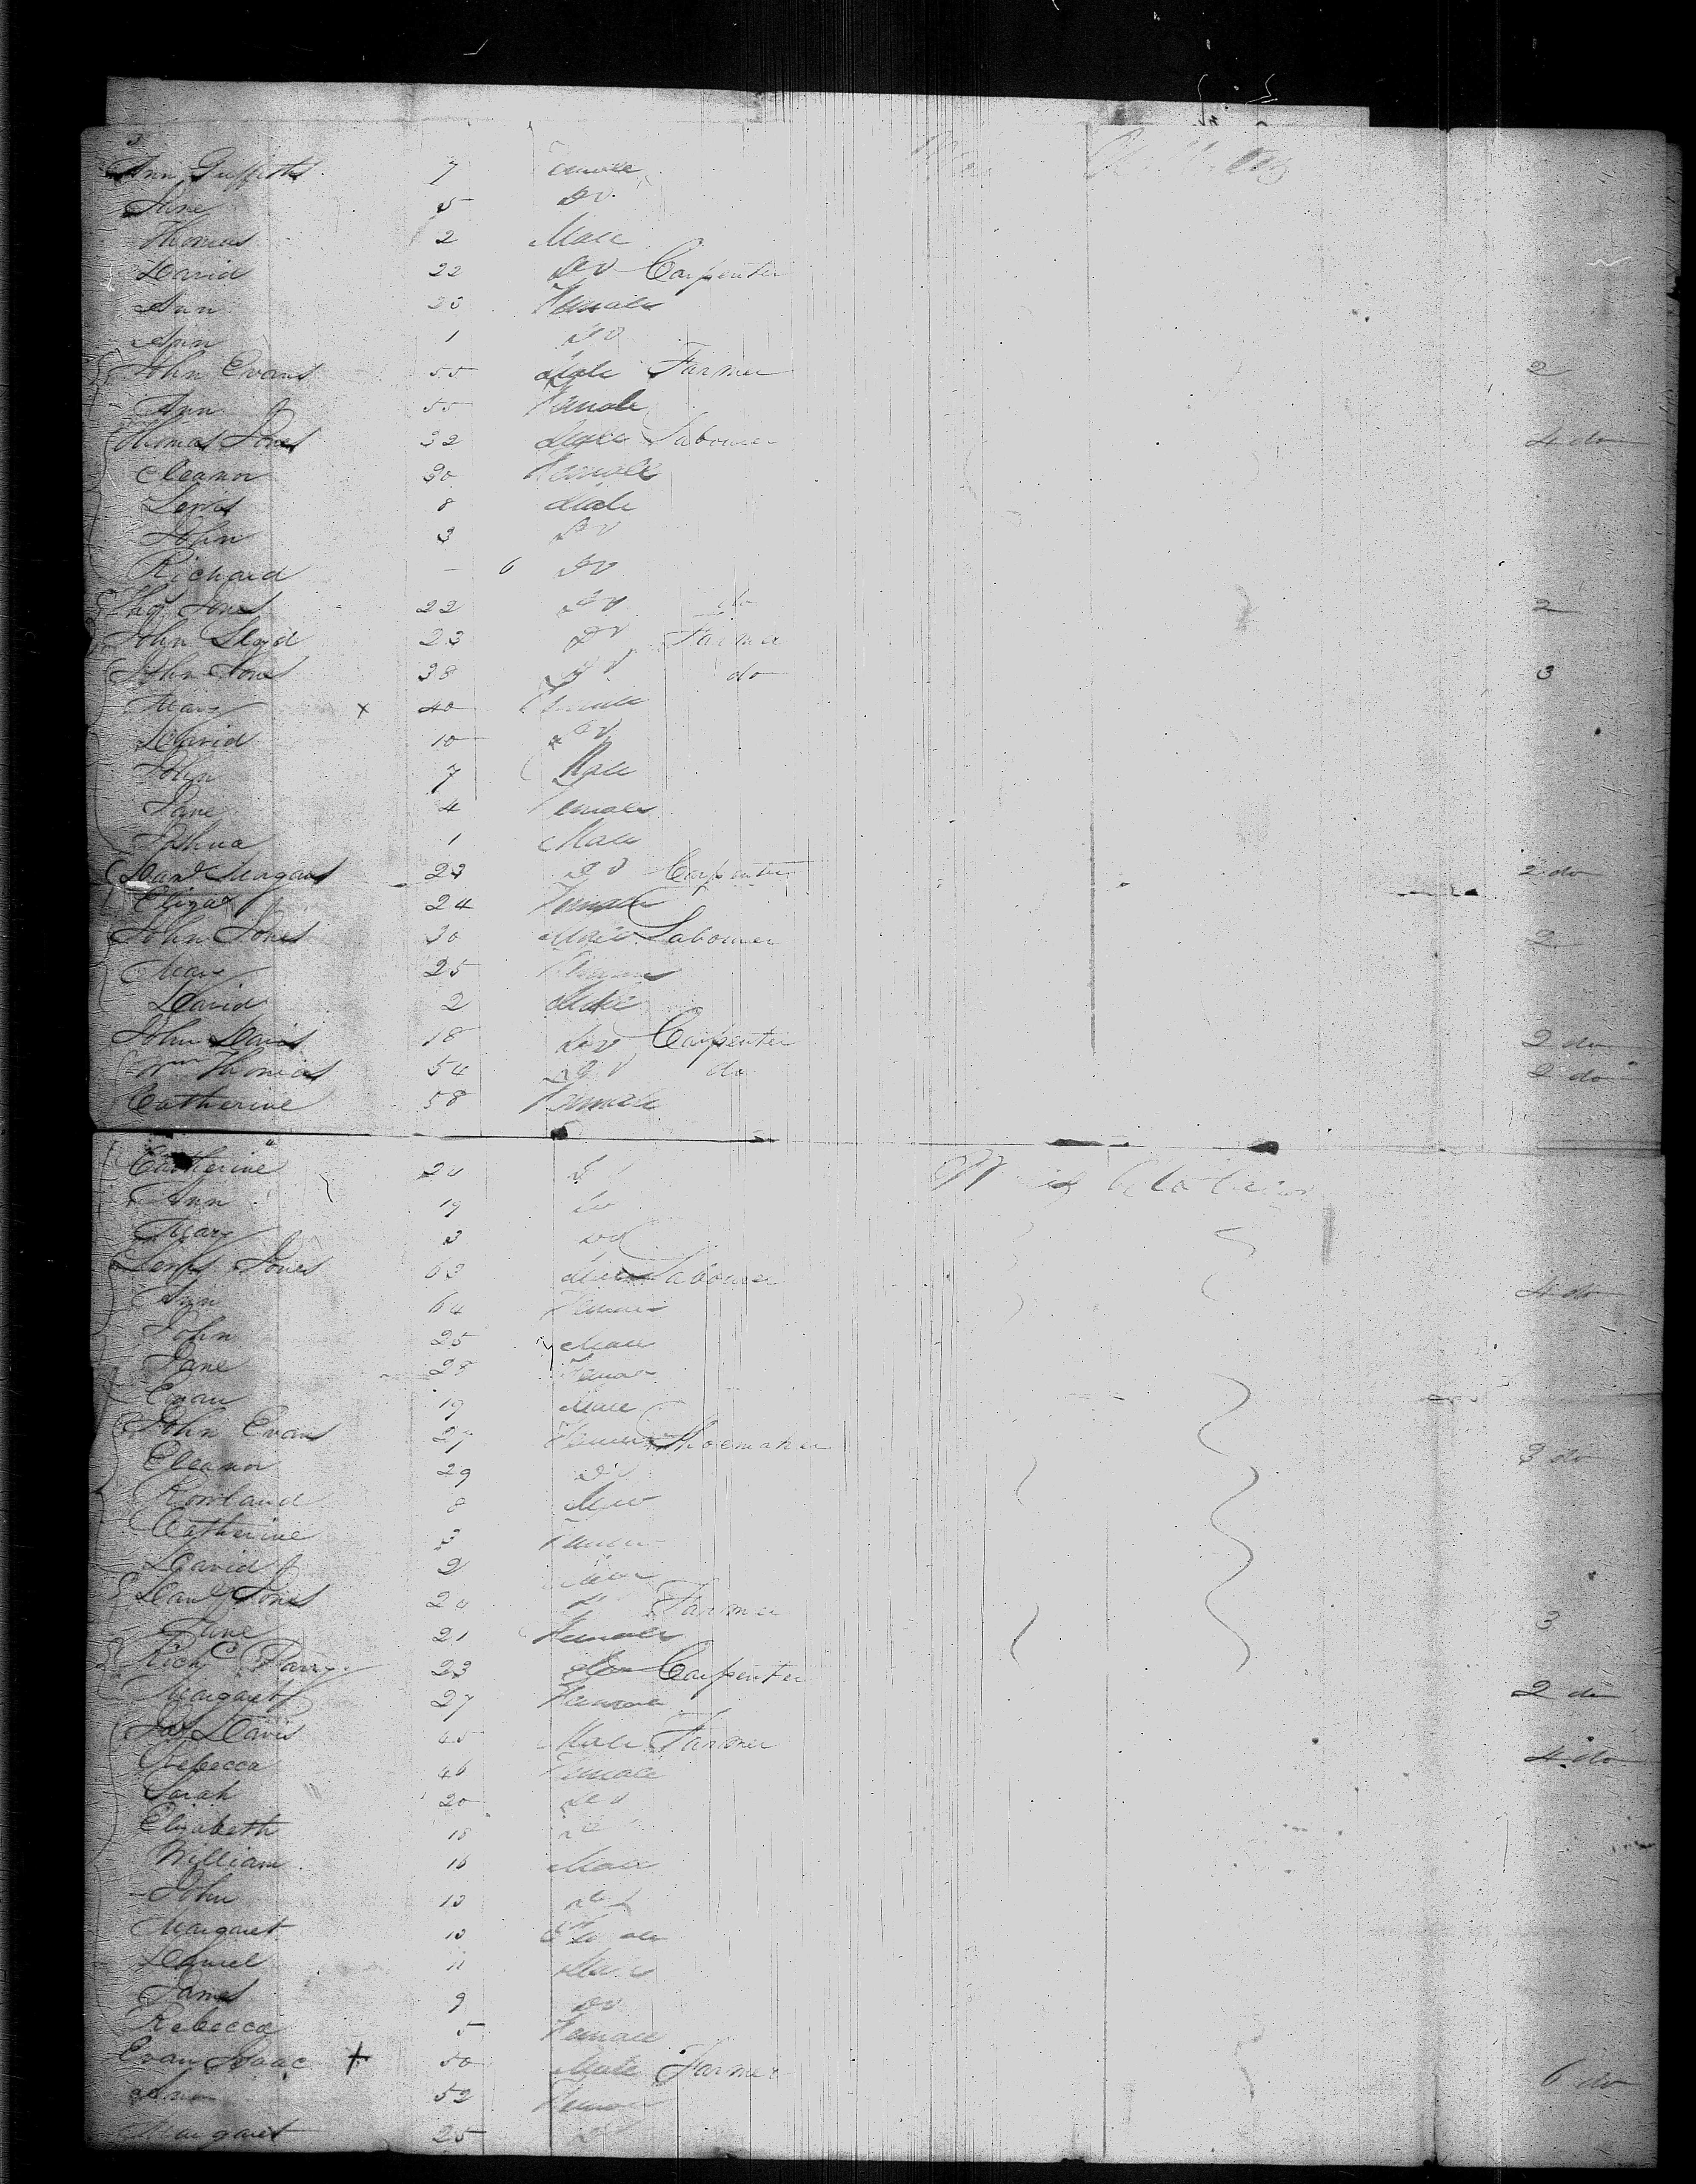 Ann Griffiths 7 Female
Jane 5 Do
Thomas 2 Male
David 22 Do Carpenter
Ann 20 Female
Ann 1 Do
John Evans 55 Male Farmer 2
Ann 55 Female
Thomas Jones 32 Male Labourer 4 do
Eleanor 30 Female
Lewis 8 Male
John 3 Do
Richard - 6 Do
Thos Jones 22 Do do 2
John Lloyd 23 Do Farmer
John Jones 38 Do do 3
Mary x 40 Female
David 10 Do
John 7 Male
Jane 4 Female
Joshua 1 Male
Danl Morgans 23 Do Carpenter 2 do
Eliza 24 Female
John Jones 30 Male Labourer 2
Mary 25 Female
David 2 Male
John Davis 18 Do Carpenter 2 do
Wm Thomas 54 Do do 2 do
Catherine 58 Female
Catherine 20
Ann 19 Do
Mary 3 Do
Lewis Jones 63 Male Labourer 4 do
Ann 64 Female
John 25 Male
Jane 28 Female
Evan 19 Male
John Evans 27 Shoemaker 3 do
Eleanor 29 Do
Rowland 8 Male
Catherine 3 Female
David 2 Male
Danl Jones 20 Farmer 3
Jane 21 Female
Richd Parry 23 Carpenter 2 do
Margaret 27 Female
Jas Davis 45 Male Farmer 4 do
Rebecca 46 Female
Sarah 20 Do
Elizabeth 18
William 16 Male
John 13 Do
Margaret 13 Female
Daniel 11 Male
James 9 Do
Rebecca 5 Female
Evan Isaac + 50 Male Farmer 6 do
Ann 52 Female
Margaret 25